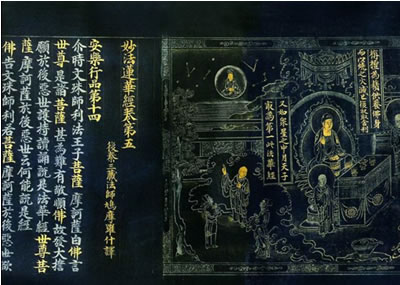 又如眾星之中月天子
最為第一此法華經
妙法蓮華經卷第五
後秦三藏法師鳩摩羅什譯
安樂行品第十四
尒時文殊師利法王子菩薩摩訶薩白佛言
世尊是諸菩薩甚為難有敬順佛故發大誓
願於後惡世護持讀誦說是法華經世尊菩
薩摩訶薩於後惡世云何能說是經
佛告文殊師利若菩薩摩訶薩於後惡世欲